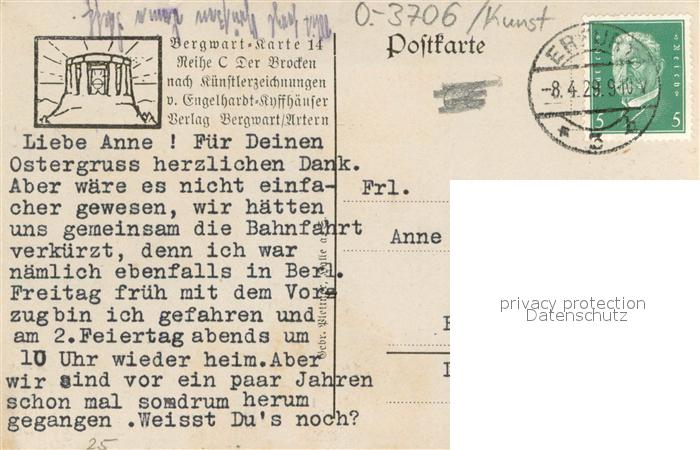 Mit
O-3706/Kunst
Bergwart-Karte 14
Reihe C Der Brocken
nach Künstlerzeichnungen
v. Engelhardt-Kyffhäuser
Verlag Bergwart/Artern
Postkarte
ERFURT
-8.4.29.9-10V
* 3 b
Deutsches Reich
5 5
Liebe Anne ! Für Deinen
Ostergruss herzlichen Dank.
Aber wäre es nicht einfa-
cher gewesen, wir hätten
uns gemeinsam die Bahnfahrt
verkürzt, denn ich war
nämlich ebenfalls in Berl.
Freitag früh mit dem Vor-
zugbin ich gefahren und
am 2.Feiertag abends um
10 Uhr wieder heim.Aber
wir sind vor ein paar Jahren
schon mal somdrum herum
gegangen .Weisst Du's noch?
Gebr. Plettner, Halle a.
Frl.
Anne
privacy protection
Datenschutz
25